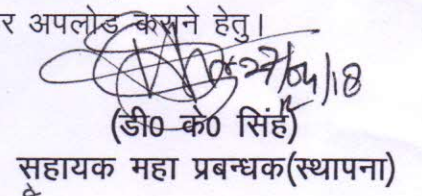 र अपलोड कराने हेतु।
27/04/18
(डी0 के0 सिंह)
सहायक महा प्रबन्धक(स्थापना)